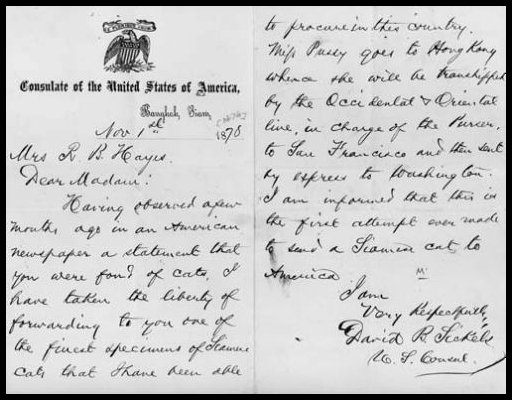 Consulate of the United States of America,
Bangkok, Siam,
Nov 1st 1878
Mrs R B. Hayes.
Dear Madam:
Having observed a few
months ago in an American
newspaper a statement that
you were fond of cats, I
have taken the liberty of
forwarding to you one of
the finest specimens of Siamese
cats that I have been able
to procure in this country.
Miss Pussy goes to Hong Kong
whence she will be transhipped
by the Occidental & Oriental
line, in charge of the Purser,
to San Francisco and then sent
by express to Washington.
I am informed that this is
the first attempt ever made
to send a Siamese cat to
America
I am
Very Respectfully,
David B. Sickels
U. S. Consul.